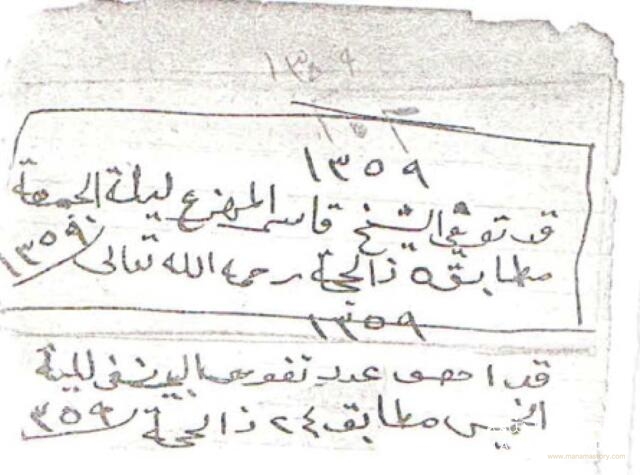 ١٣٥٩
١٣٥٩
قد توفي الشيخ قاسم المهزع ليلة الجمعة
مطابق ٥ ذالحجة رحمه الله تعالى ١٣٥٩
١٣٥٩
قد احصى عدد نفوس البحرين في ليلة
الخميس مطابق ٢٤ ذالحجة ١٣٥٩
www.manamastory.com